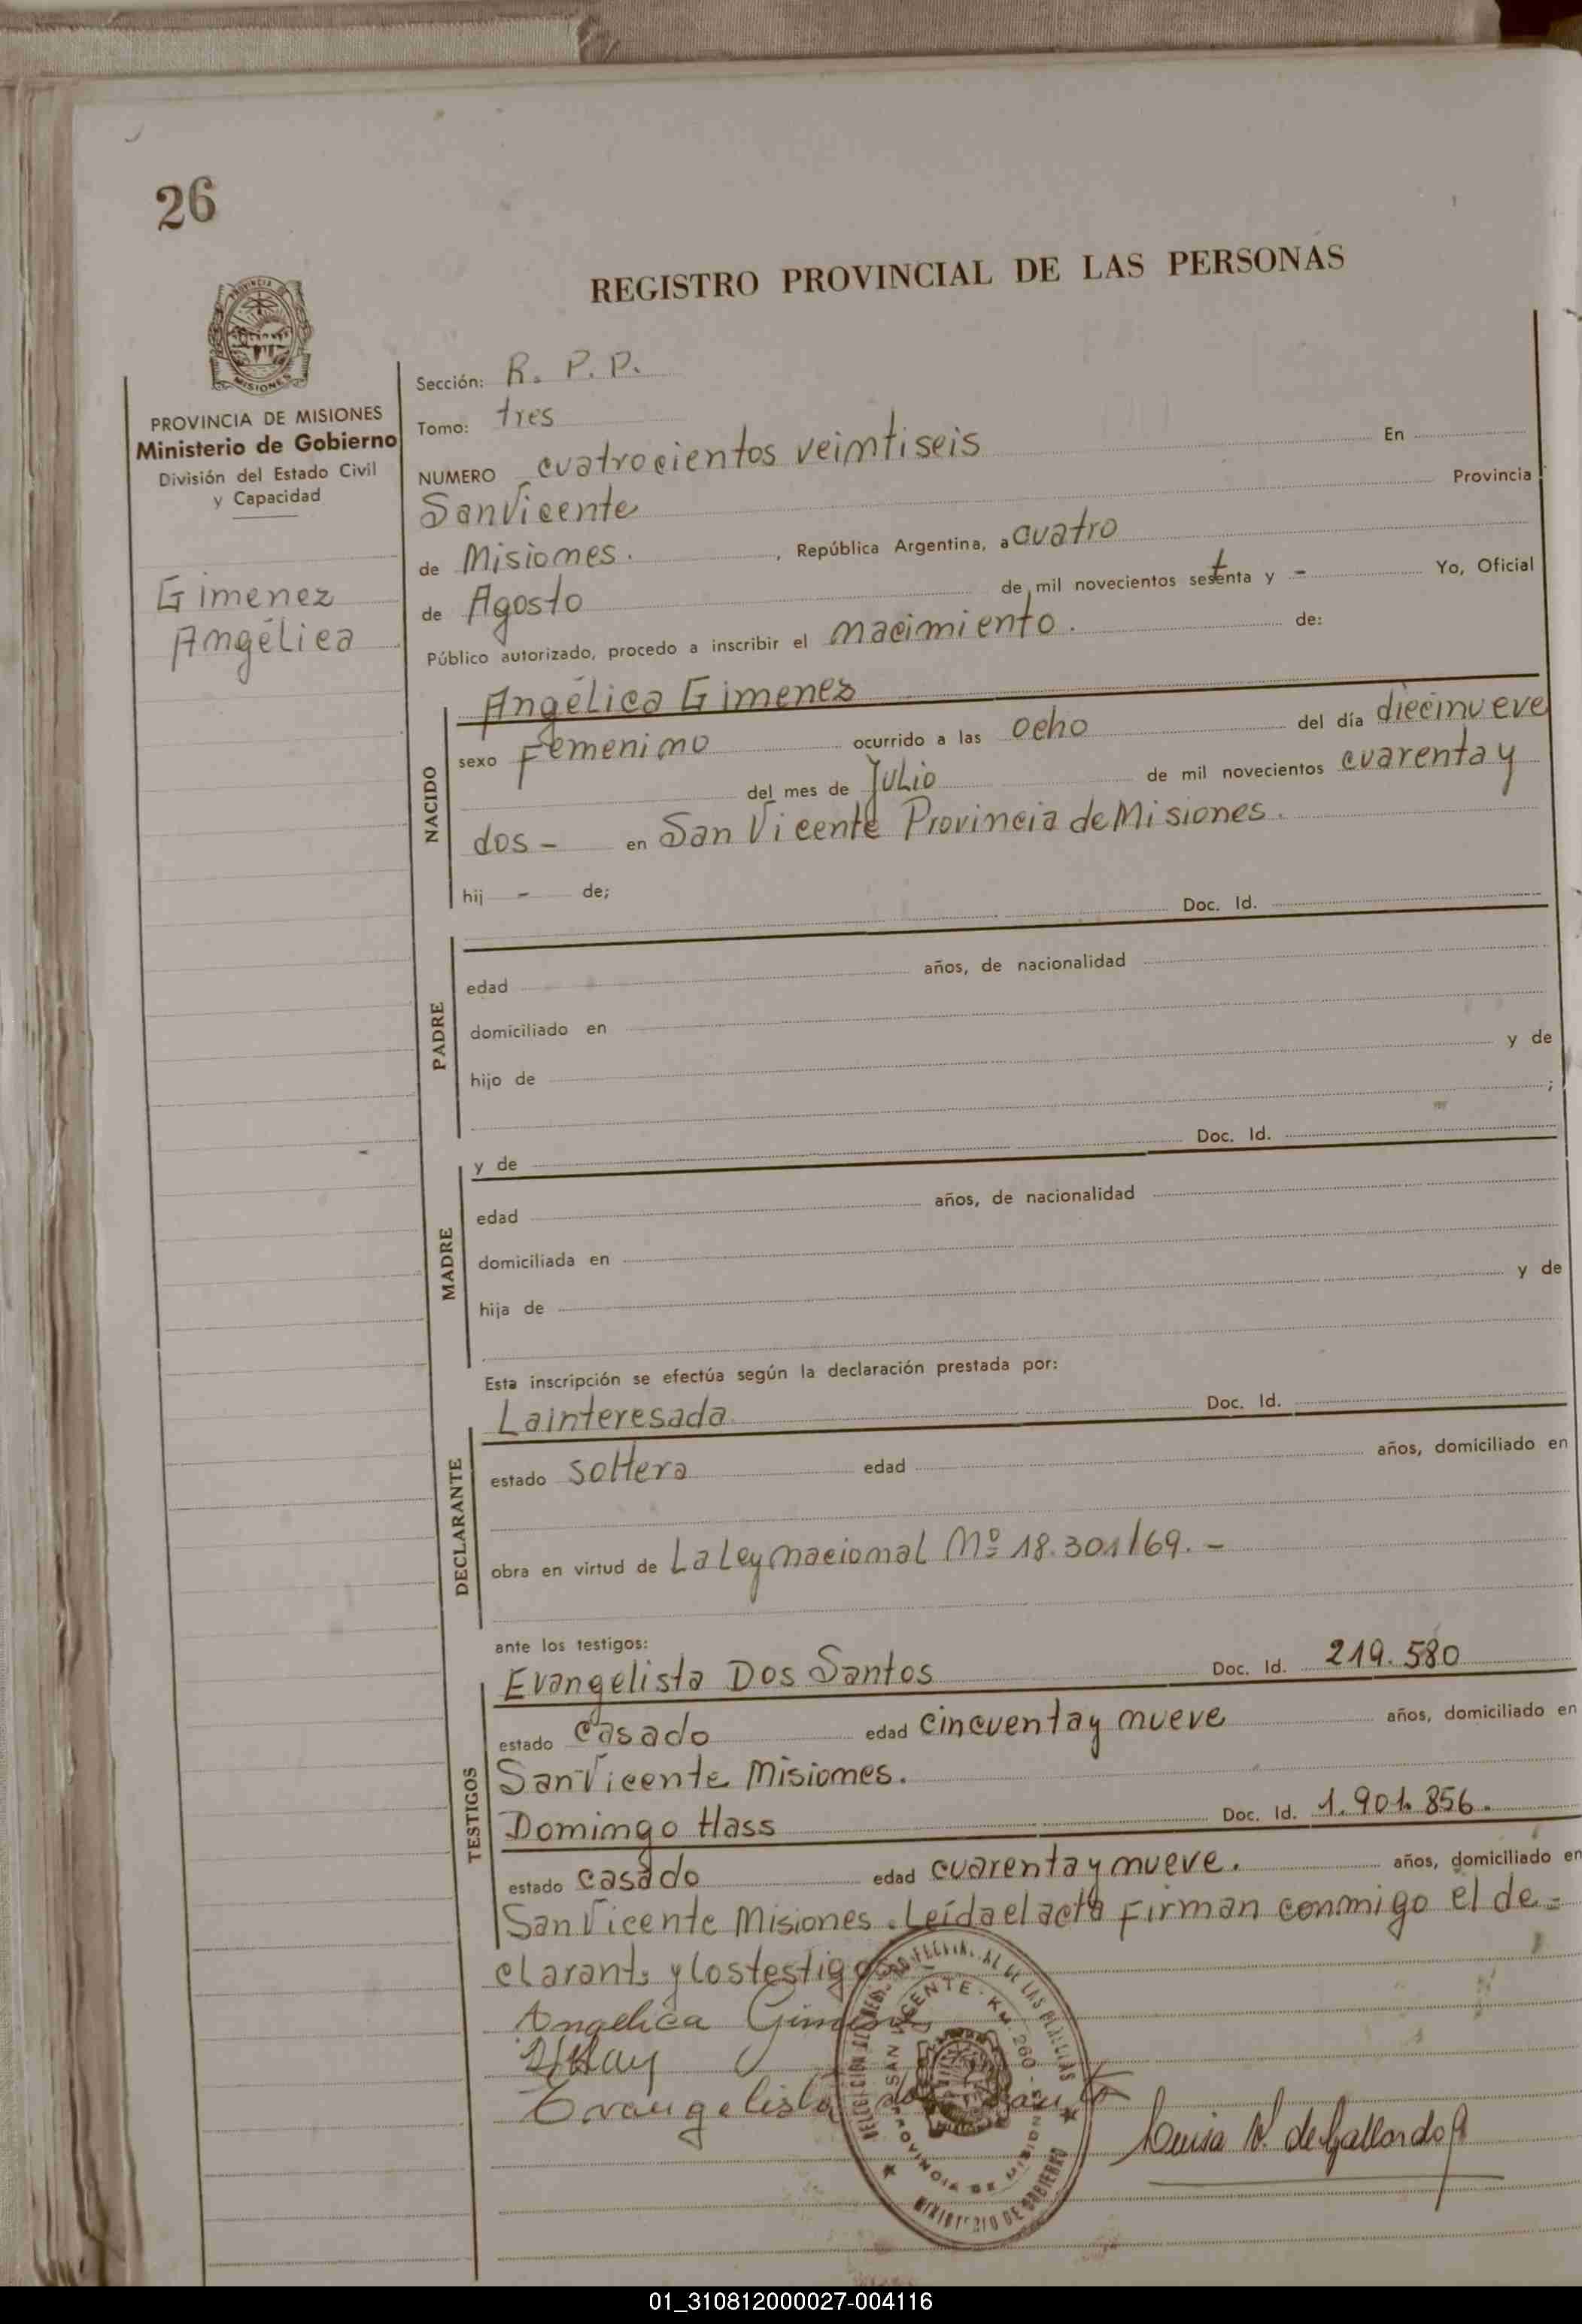 26
REGISTRO PROVINCIAL DE LAS PERSONAS
PROVINCIA DE MISIONES
Ministerio de Gobierno
División del Estado Civil
y Capacidad
Gimenez
Angélica
Sección: R. P. P.
Tomo: tres
NUMERO cuatrocientos veintiseis En
San Vicente Provincia
de Misiones. , República Argentina, a cuatro
de Agosto de mil novecientos setenta y - Yo, Oficial
Público autorizado, procedo a inscribir el nacimiento. de:
NACIDO
Angélica Gimenez
sexo Femenino ocurrido a las ocho del día diecinueve
del mes de Julio de mil novecientos cuarenta y
dos - en San Vicente Provincia de Misiones.
hij - de;
PADRE
Doc. Id.
edad años, de nacionalidad
domiciliado en
hijo de y de
;
MADRE
y de Doc. Id.
edad años, de nacionalidad
domiciliada en
hija de y de
Esta inscripción se efectúa según la declaración prestada por:
DECLARANTE
La interesada Doc. Id.
estado soltera edad años, domiciliado en
obra en virtud de La Ley nacional Nº 18.301/69. -
ante los testigos:
TESTIGOS
Evangelista Dos Santos Doc. Id. 219.580
estado casado edad cincuenta y nueve años, domiciliado en
San Vicente Misiones.
Domingo Hass Doc. Id. 1.901.856.
estado casado edad cuarenta y nueve. años, domiciliado en
San Vicente Misiones. Leída el acta Firman conmigo el de=
clarante y los testigos
Angelica Gimenez
Evangelista dos Santos
Luisa V. de Gallardo
SAN VICENTE - KM. 260 -
PROVINCIA DE MISIONES
MINISTERIO DE GOBIERNO
01_310812000027-004116